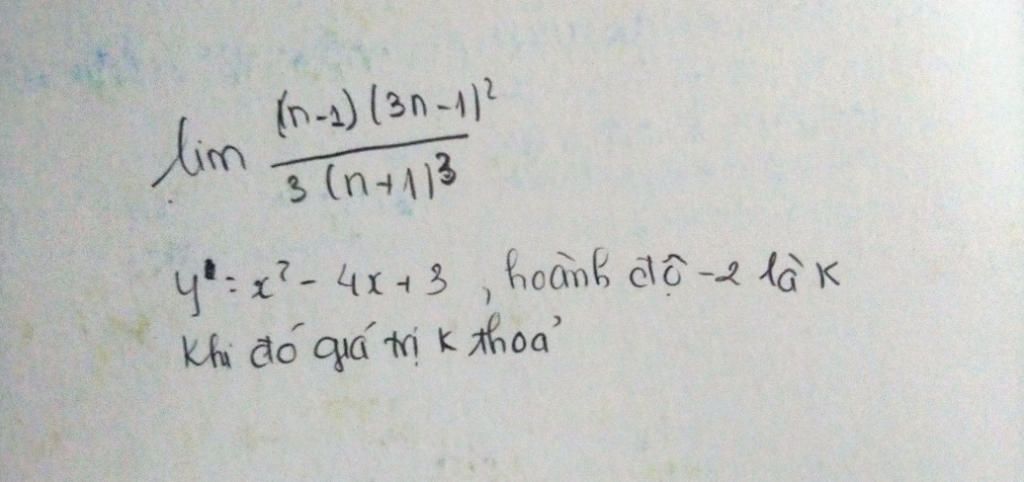 lim (n-1)(3n-1)² / 3(n+1)³
y = x² - 4x + 3 , hoành độ -2 là K
Khi đó giá trị K thoả